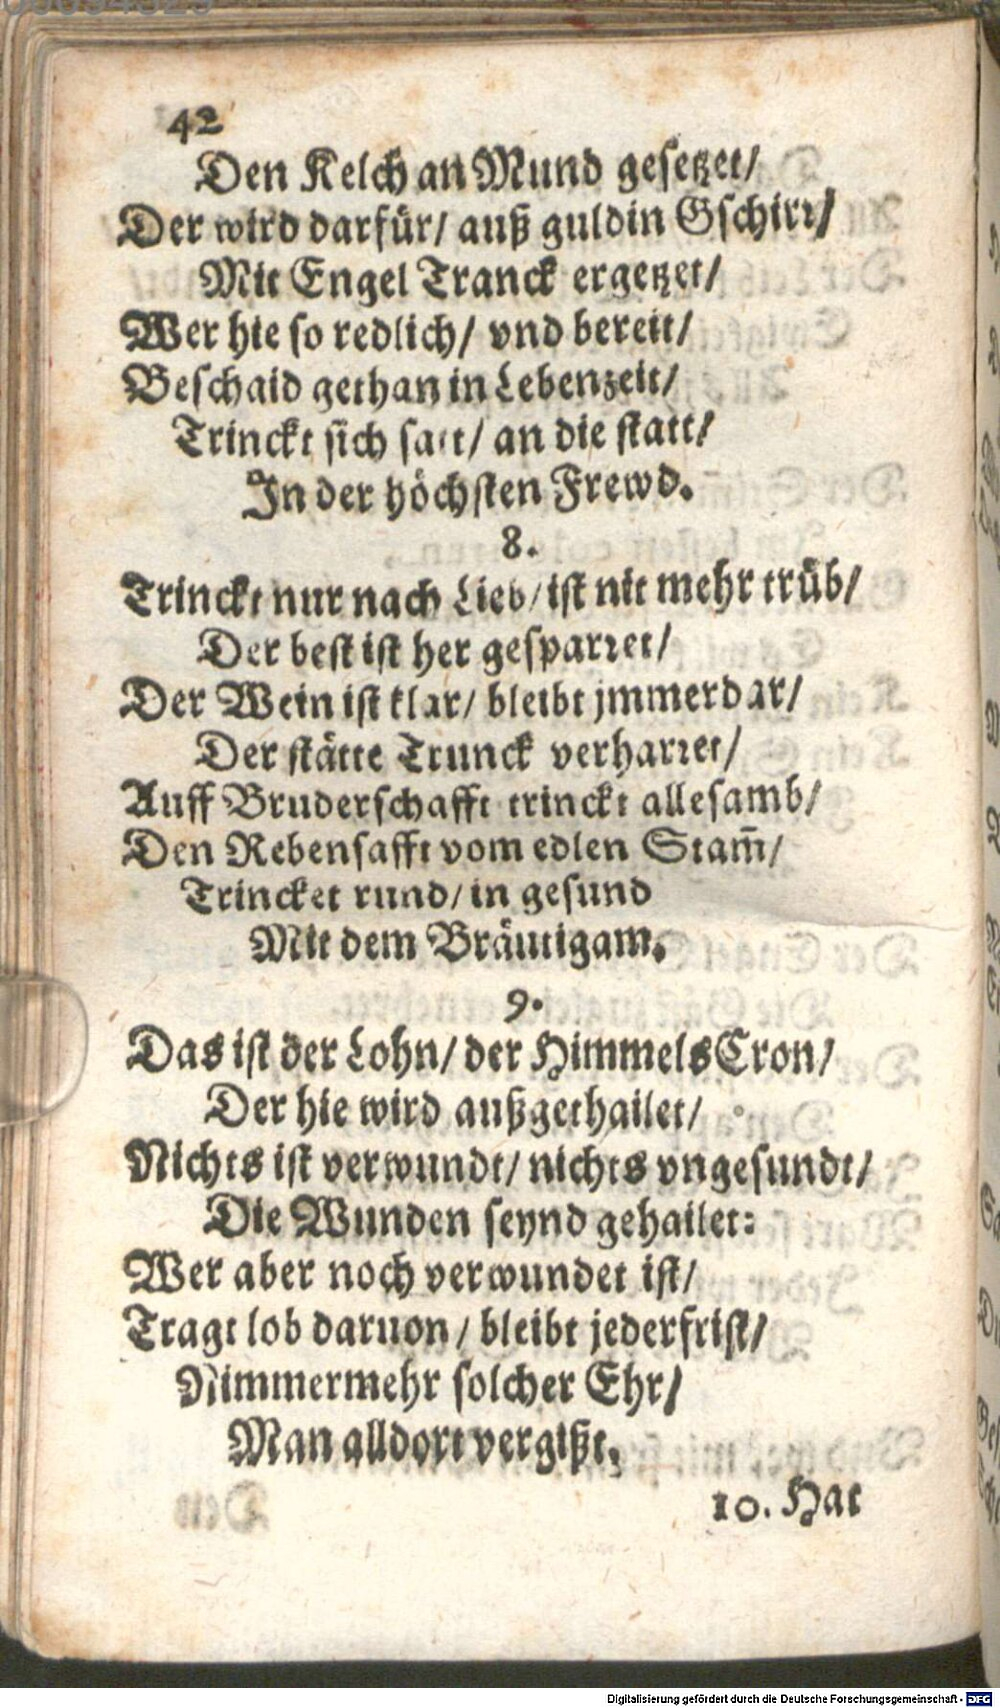 42
Den Kelch an Mund gesetzet/
Der wird darfür/ auß guldin Gschirr/
Mit Engel Tranck ergetzet/
Wer hie so redlich/ vnd bereit/
Beschaid gethan in Lebenzeit/
Trinckt sich satt/ an die statt/
In der höchsten Frewd.
8.
Trinckt nur nach Lieb/ ist nit mehr trüb/
Der best ist her gesparret/
Der Wein ist klar/ bleibt jmmerdar/
Der stätte Trunck verharret/
Auff Bruderschafft trinckt allesamb/
Den Rebensafft vom edlen Stam̄/
Trincket rund/ in gesund
Mit dem Bräutigam.
9.
Das ist der Lohn/ der Himmels Cron/
Der hie wird außgethailet/
Nichts ist verwundt/ nichts vngesundt/
Die Wunden seynd gehailet:
Wer aber noch verwundet ist/
Tragt lob daruon/ bleibt jederfrist/
Nimmermehr solcher Ehr/
Man alldort vergißt.
10. Hat
Digitalisierung gefördert durch die Deutsche Forschungsgemeinschaft - DFG